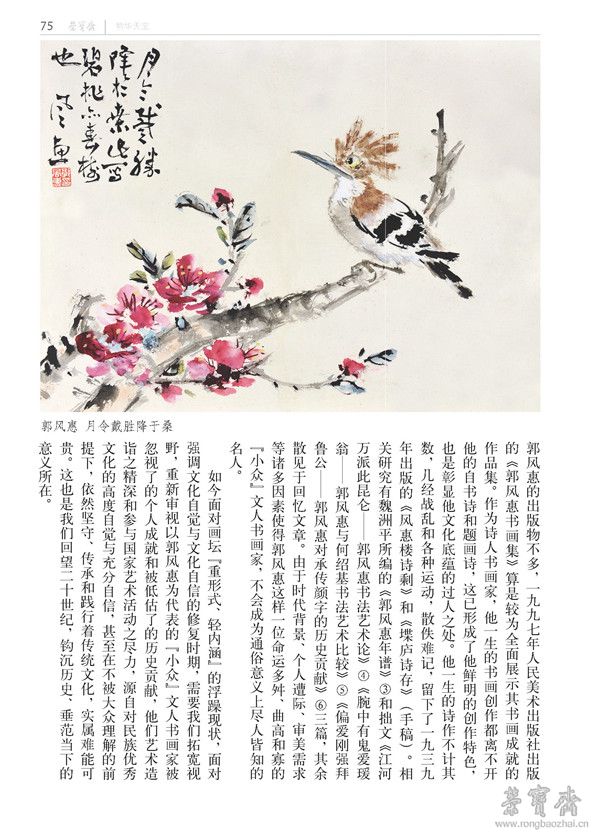 75 荣宝斋 物华天宝
月令戴勝
降於桑此寫
碧桃亦
也
郭风惠 月令戴胜降于桑
郭风惠的出版物不多，一九九七年人民美术出版社出版
的《郭风惠书画集》算是较为全面展示其书画成就的
作品集。作为诗人书画家，他一生的书画创作都离不开
他的自书诗和题画诗，这已形成了他鲜明的创作特色，
也是彰显他文化底蕴的过人之处。他一生的诗作不计其
数，几经战乱和各种运动，散佚难记，留下了一九三九
年出版的《风惠楼诗剩》和《堞庐诗存》（手稿）。相
关研究有魏洲平所编的《郭风惠年谱》③和拙文《江河
万派此昆仑——郭风惠书法艺术论》④《腕中有鬼爱瑗
翁——郭风惠与何绍基书法艺术比较》⑤《偏爱刚强拜
鲁公——郭风惠对承传颜字的历史贡献》⑥三篇，其余
散见于回忆文章。由于时代背景、个人遭际、审美需求
等诸多因素使得郭风惠这样一位命运多舛、曲高和寡的
『小众』文人书画家，不会成为通俗意义上尽人皆知的
名人。
如今面对画坛『重形式、轻内涵』的浮躁现状，面对
强调文化自觉与文化自信的修复时期，需要我们拓宽视
野，重新审视以郭风惠为代表的『小众』文人书画家被
忽视了的个人成就和被低估了的历史贡献，他们艺术造
诣之精深和参与国家艺术活动之尽力，源自对民族优秀
文化的高度自觉与充分自信，甚至在不被大众理解的前
提下，依然坚守、传承和践行着传统文化，实属难能可
贵。这也是我们回望二十世纪，钩沉历史、垂范当下的
意义所在。
荣宝斋
www.rongbaozhai.cn